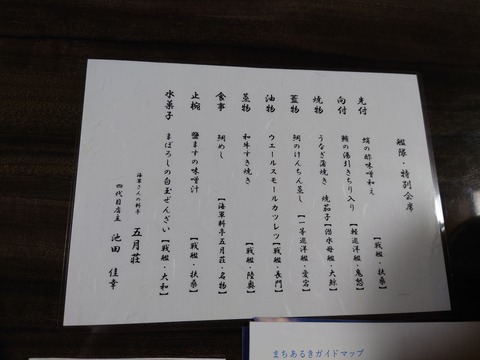 艦隊・特別会席
先付 蛸の酢味噌和え 【戦艦・扶桑】
向付 鱧の湯引きちり入り 【軽巡洋艦・鬼怒】
焼物 うなぎ蒲焼き 焼茄子 【潜水母艦・大鯨】
蓋物 鯛のけんちん蒸し 【一等巡洋艦・愛宕】
油物 ウエールスモールカツレツ 【戦艦・長門】
蒸物 和牛すき焼き 【戦艦・陸奥】
食事 鯛めし 【海軍料亭五月荘・名物】
止椀 鱒ますの味噌汁 【戦艦・扶桑】
水菓子 まぼろしの白玉ぜんざい 【戦艦・大和】
海軍さんの料亭 五月荘
四代目店主 池田 佳幸
まちあるきガイドマップ